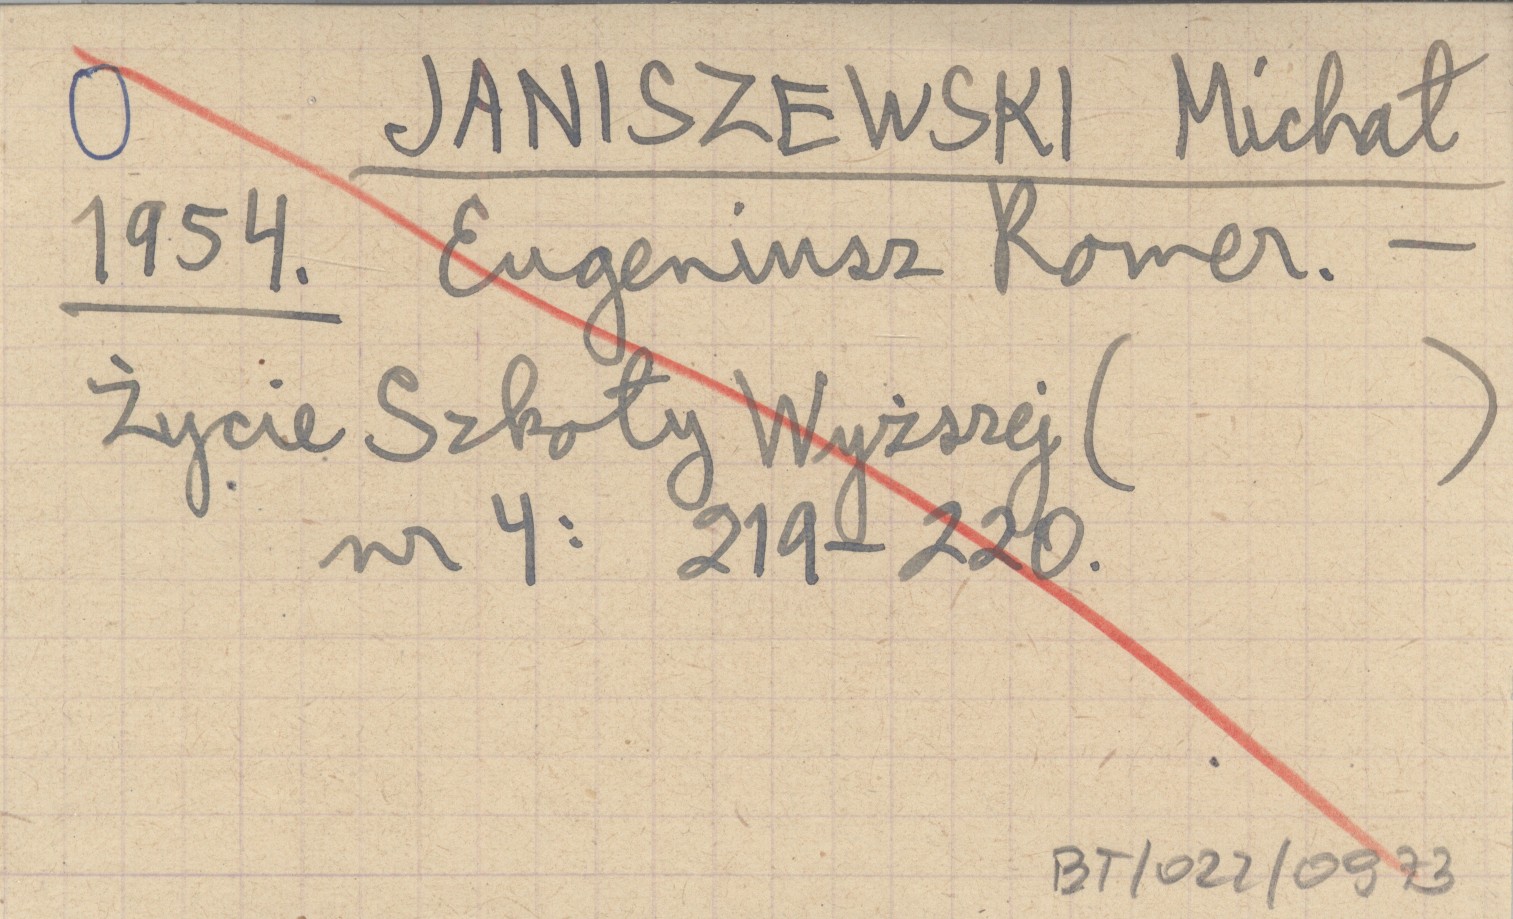 0 JANISZEWSKI Michał
1954. Eugeniusz Romer. —
Życie Szkoły Wyższej ( )
nr 4: 219–220.
BT/022/0973